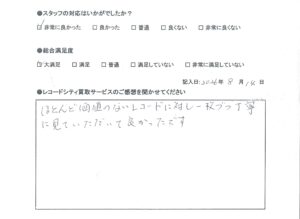 ●スタッフの対応はいかがでしたか？
非常に良かった □ 良かった □ 普通 □ 良くない □ 非常に良くない
●総合満足度
大満足 □ 満足 □ 普通 □ 満足していない □ 非常に満足していない
記入日:2016年8月
●レコードシティ買取サービスのご感想を聞かせてください
ほとんど価値のないレコードに対し一枚づつ丁寧
に見ていただいて良かったです